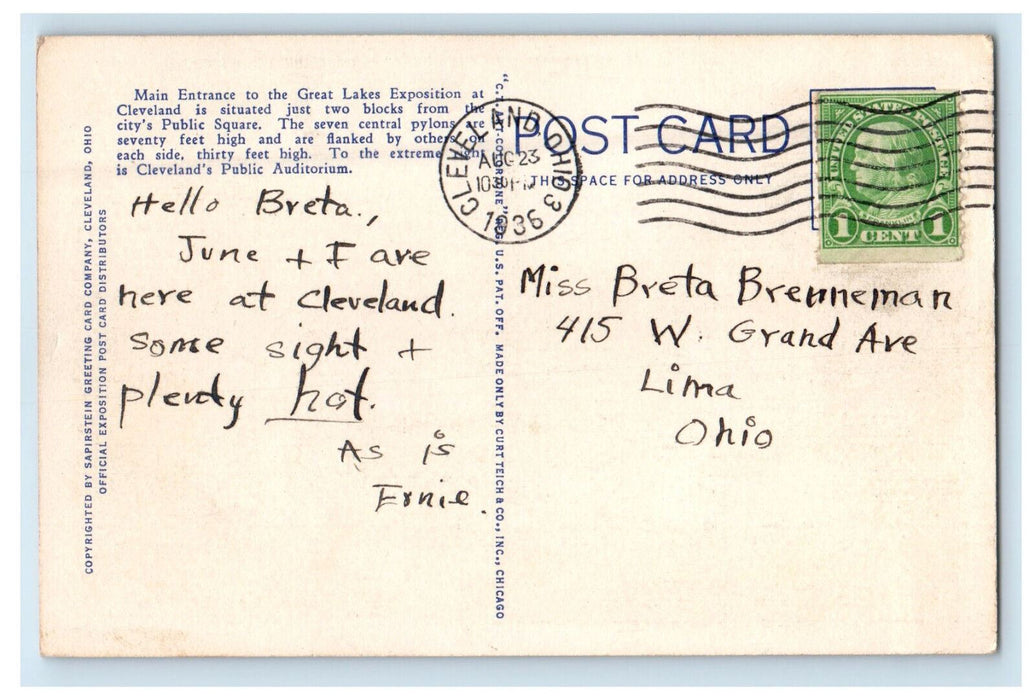 Main Entrance to the Great Lakes Exposition at
Cleveland is situated just two blocks from the
city's Public Square. The seven central pylons are
seventy feet high and are flanked by others on
each side, thirty feet high. To the extreme right
is Cleveland's Public Auditorium.
Hello Breta.,
June + I are
here at Cleveland.
Some sight +
plenty hot.
As is
Ernie.
COPYRIGHTED BY SAPIRSTEIN GREETING CARD COMPANY, CLEVELAND, OHIO
OFFICIAL EXPOSITION POST CARD DISTRIBUTORS
"C.T. ART-COLORTONE" REG. U.S. PAT. OFF. MADE ONLY BY CURT TEICH & CO., INC., CHICAGO
CLEVELAND, OHIO 3
AUG 23
1936
POST CARD
THIS SPACE FOR ADDRESS ONLY
UNITED STATES POSTAGE
FRANKLIN
1 CENT 1
Miss Breta Brenneman
415 W. Grand Ave
Lima
Ohio